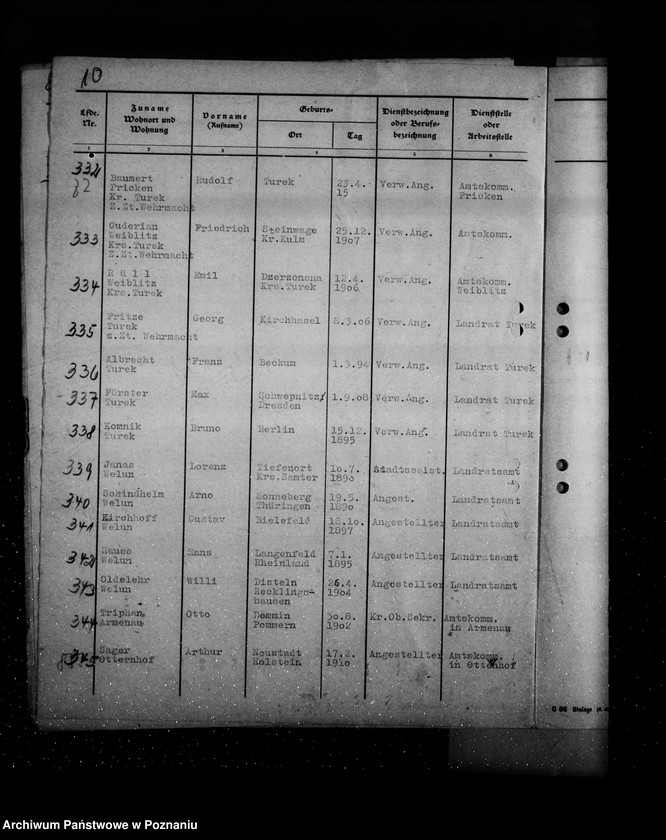 10
Lfde. Nr. Zuname Wohnort und Wohnung Vorname (Rufname) Geburts- Ort Tag Dienstbezeichnung oder Berufs-bezeichnung Dienststelle oder Arbeitsstelle
1 2 3 4 5 6
332 Baumert Rudolf Turek 23.4. Verw.Ang. Amtskomm.
Pricken 15 Pricken
Kr. Turek
Z.Zt.Wehrmacht
333 Guderian Friedrich Steinwage 25.12. Verw.Ang. Amtskomm.
Weiblitz Kr.Kulm 1907
Krs.Turek
Z.Zt.Wehrmacht
334 Rüll Emil Dzerzonsna 12.4. Verw.Ang. Amtskomm.
Weiblitz Krs.Turek 1906 Weiblitz
Krs.Turek
335 Fritze Georg Kirchhasel 8.3.06 Verw.Ang. Landrat Turek
Turek
z.Zt. Wehrmacht
336 Albrecht Franz Beckum 1.5.94 Verw.Ang. Landrat Turek
Turek
337 Förster Max Schwepnitz/ 1.9.08 Verw.Ang. Landrat Turek
Turek Dresden
338 Komnik Bruno Berlin 15.12. Verw.Ang. Landrat Turek
Turek 1895
339 Janas Lorenz Tiefenort 10.7. Stadtassist. Landratsamt
Welun Krs.Samter 1890
340 Schindhelm Arno Sonneberg 19.5. Angest. Landratsamt
Welun Thüringen 1890
341 Kirchhoff Gustav Bielefeld 18.10. Angestellter Landratsamt
Welun 1897
342 Hauss Hans Langenfeld 7.1. Angestellter Landratsamt
Welun Rheinland 1895
343 Oldelehr Willi Disteln 26.4. Angestellter Landratsamt
Welun Recklings- 1904
hausen
344 Triphan Otto Demmin 30.8. Kr.Ob.Sekr. Amtskomm.
Armenau Pommern 1902 in Armenau
345 Sager Arthur Neustadt 17.2. Angestellter Amtskomm.
Otternhof Holstein 1910 in Ottenhof
Archiwum Państwowe w Poznaniu